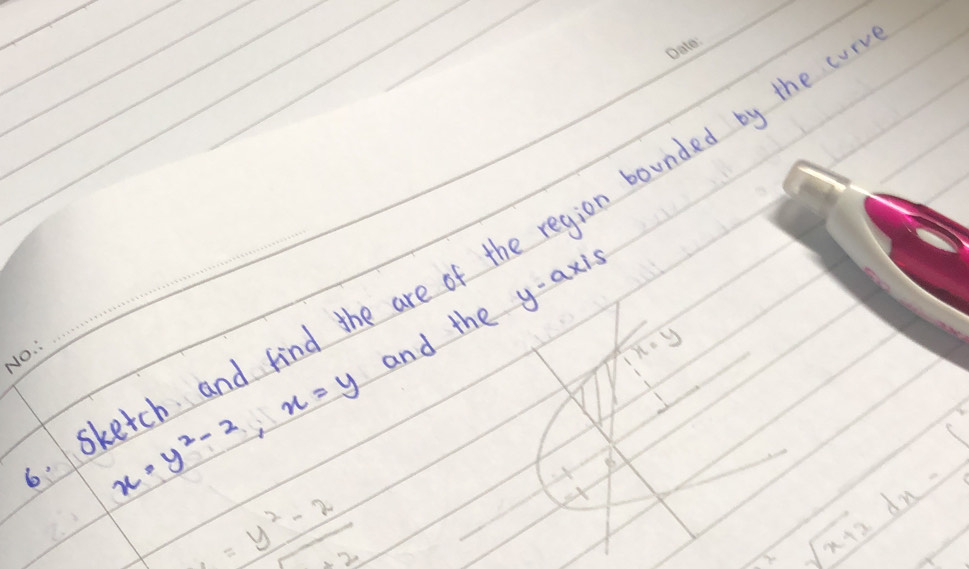 Date:
No.:
6. Sketch and find the are of the region bounded by the curve
x = y² - 2, x = y and the y-axis
x = y
= y² - 2
√x+2 dx -